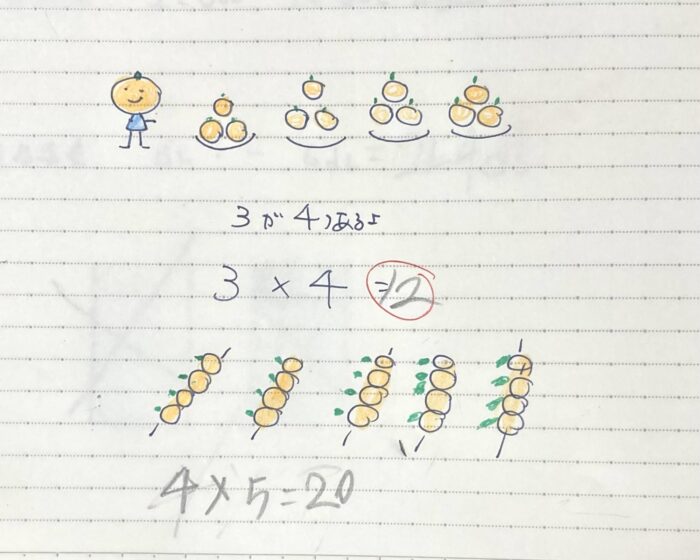 3が4つあるよ
3 × 4 = 12
4 × 5 = 20